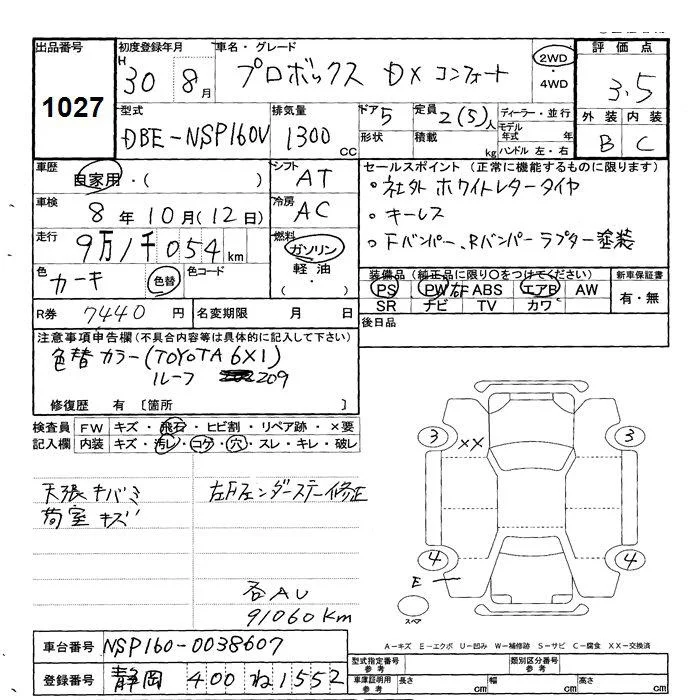 出品番号
1027
初度登録年月
H 30 8月
車名・グレード
プロボックス DX コンフォート
2WD
・
4WD
評価点
3.5
外装 内装
B C
型式
DBE-NSP160V
排気量
1300 CC
ドア 5
形状
定員 2(5)人
積載 kg
ディーラー・並行
モデル年式 年
ハンドル 左・右
車歴
自家用・( )
シフト
AT
セールスポイント (正常に機能するものに限ります)
・社外 ホワイトレタータイヤ
・キーレス
・Fバンパー、Rバンパー ラプター塗装
車検
8年 10月(12日)
冷房
AC
走行
9万1千054km
燃料
ガソリン
軽油
・( )
色
カーキ
色替
色コード
装備品 (純正品に限り○をつけてください)
PS PW ABS エアB AW
SR ナビ TV カワ
新車保証書
有・無
R券 7440円
名変期限 月 日
後日品
注意事項申告欄 (不具合内容等は具体的に記入して下さい)
色替カラー(TOYOTA 6X1)
ルーフ 209
修復歴 有 [箇所 ]
検査員
記入欄
FW キズ・飛石・ヒビ割・リペア跡・×要
内装 キズ・汚レ・コゲ・穴・スレ・キレ・破レ
天張キバミ
荷室キズ
左Fフェンダーステー修正
呑AU
91060km
3 XX 3
4 4
E
スペア
A-キズ E-エクボ U-凹み W-補修跡 S-サビ C-腐食 XX-交換済
車台番号 NSP160-0038607
登録番号 静岡 400 ね 1552
型式指定番号
参考
類別区分番号
参考
車庫証明用
参考
長さ cm 幅 cm 高さ cm